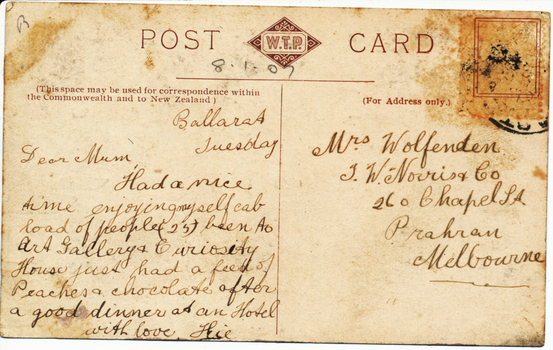 B
POST W.T.P. CARD
(This space may be used for correspondence within
the Commonwealth and to New Zealand)
(For Address only.)
Ballarat
Tuesday
Dear Mum
Had a nice
time enjoying myself cab
load of people (25) been to
Art Gallery & Curiosity
House just had a feed of
Peaches & chocolate after
a good dinner at an Hotel
with love
Mrs Wolfenden
260 Chapel St
Prahran
Melbourne